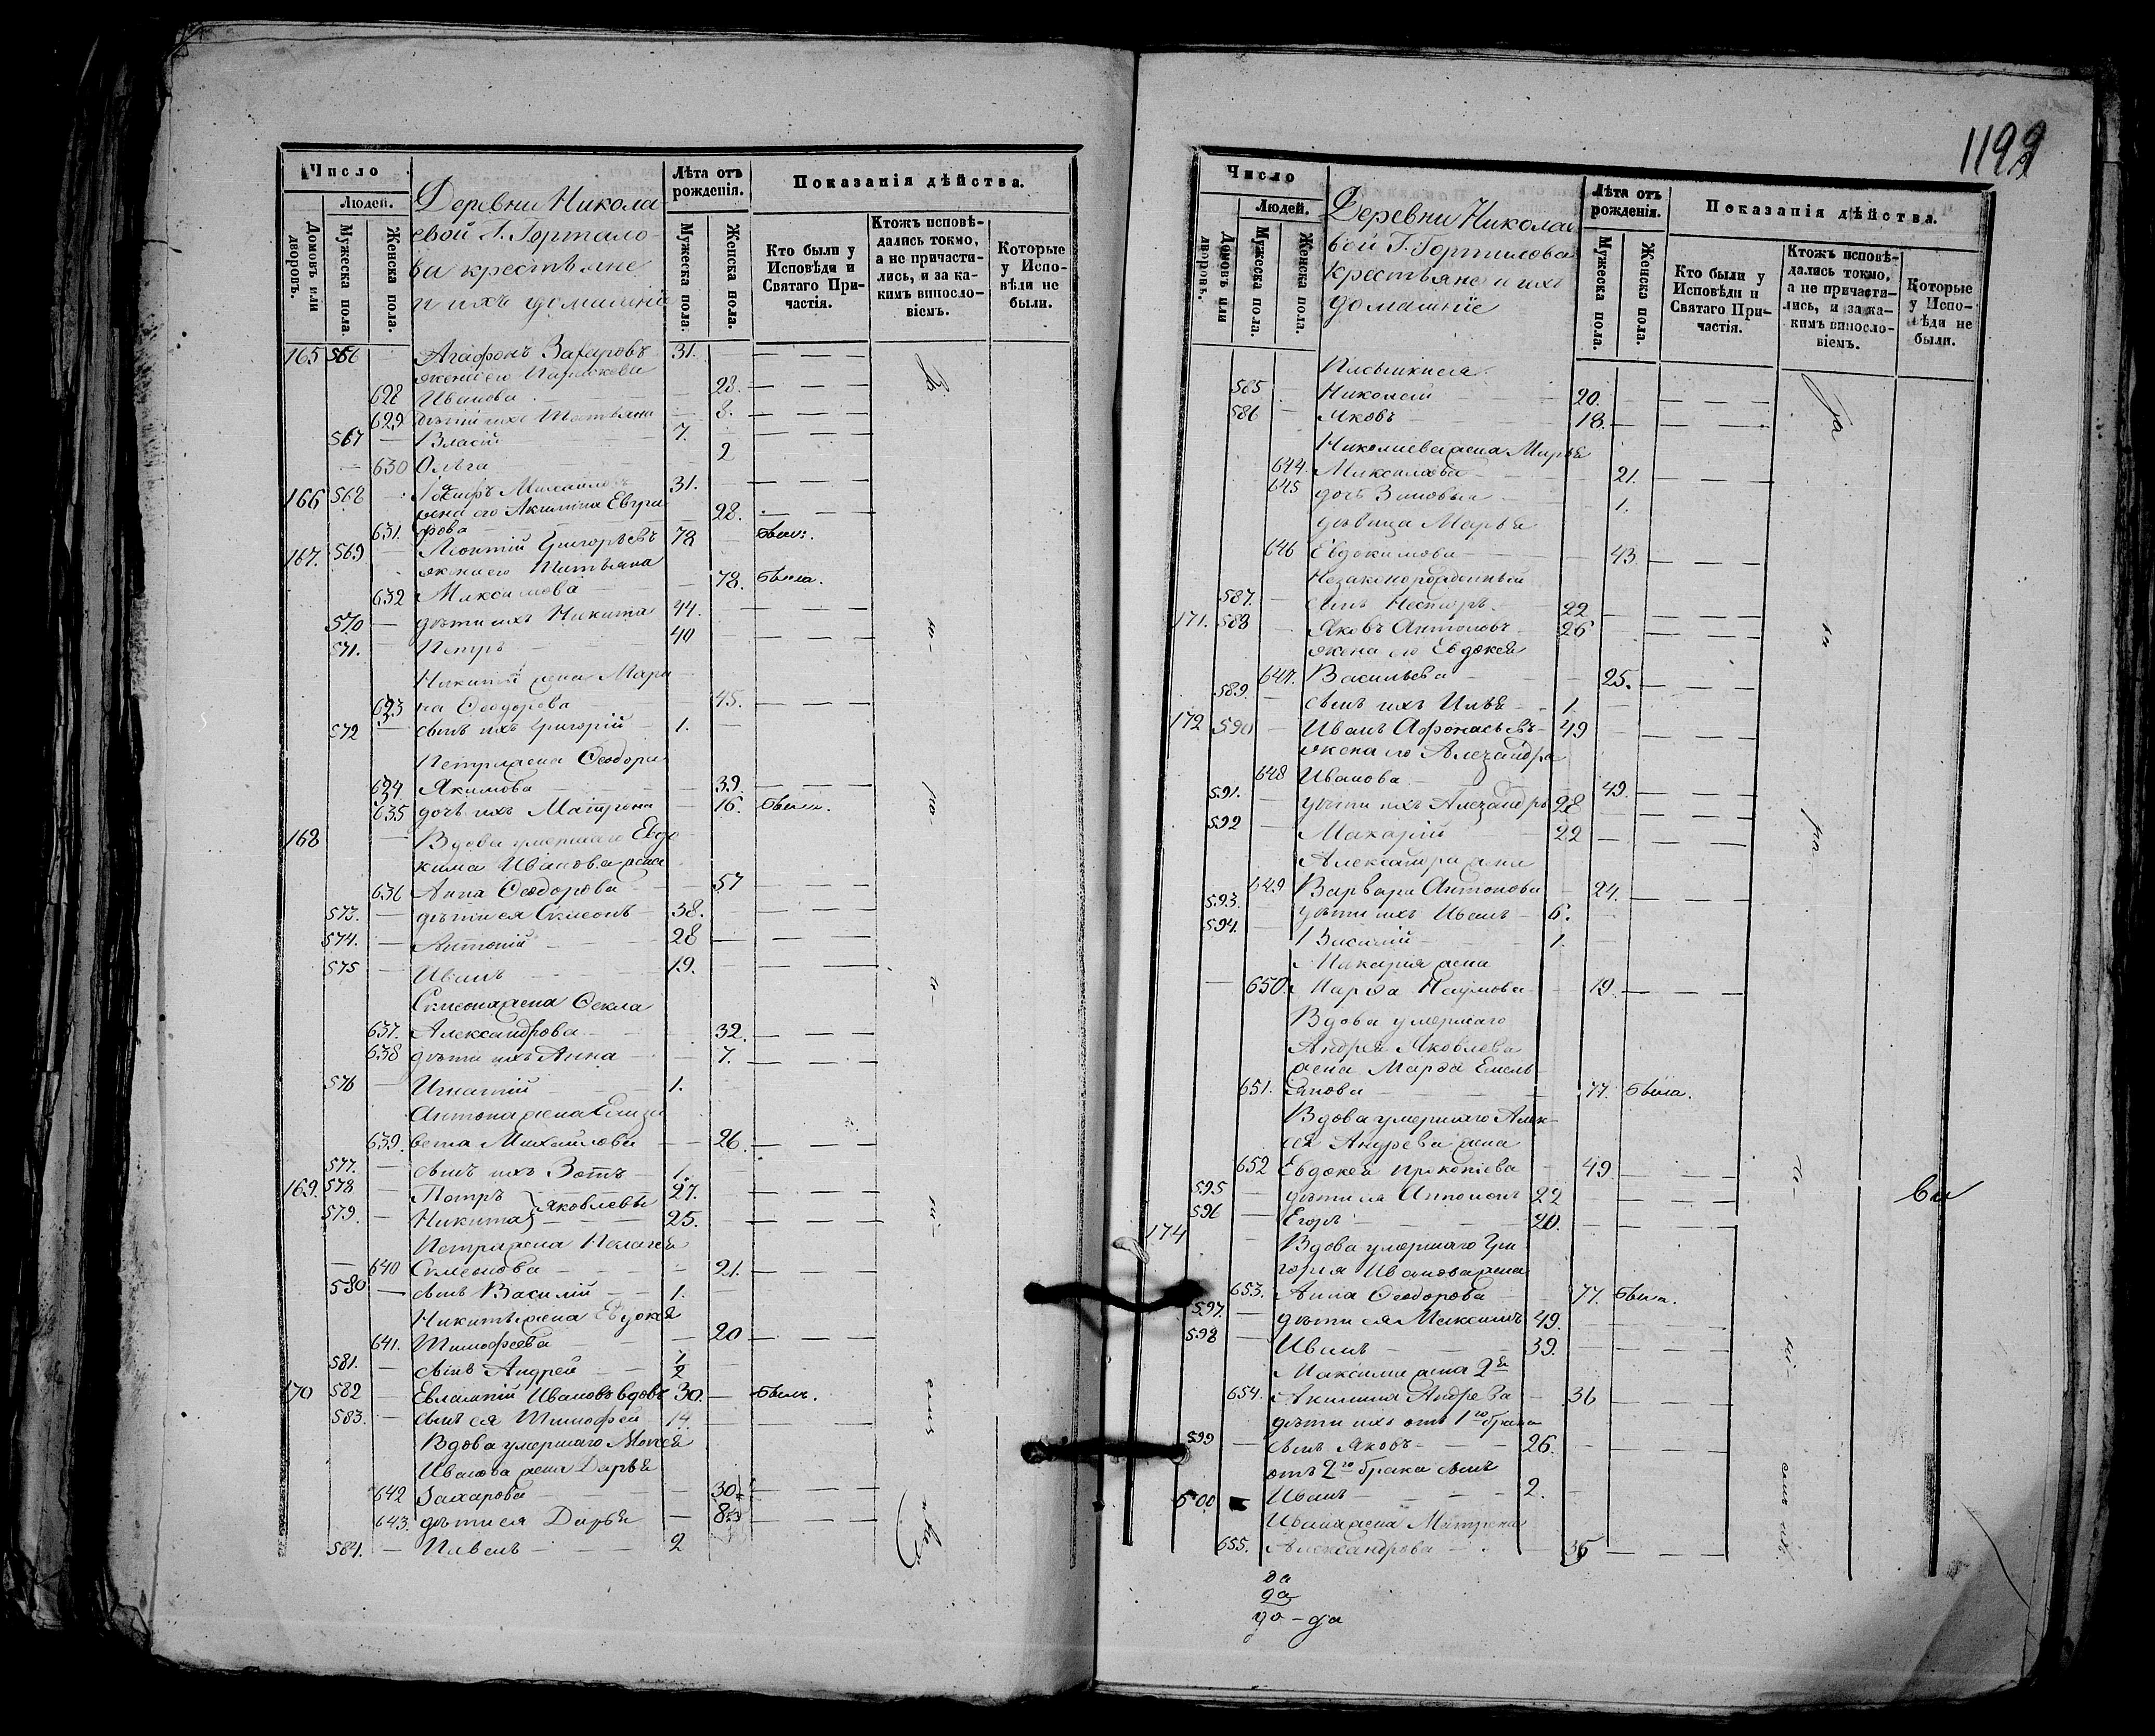 1199
Число
Людей.
Домовъ или дворовъ.
Мужеска пола.
Женска пола.
Деревни Никола
евой Г. Гортало-
ва крестьяне
и ихъ домашніе
Лѣта отъ рожденія.
Мужеска пола.
Женска пола.
Показанія дѣйства.
Кто были у Исповѣди и Святаго При-частія.
Ктожъ исповѣ-дались токмо, а не причасти-лись, и за ка-кимъ винословіемъ.
Которые у Испо-вѣди не были.
165 566 Агафонъ Захаровъ 31.
жена его
628 Иванова 28.
629 дѣти ихъ Татьяна 8.
567 Власій 7.
630 Ольга 2
166 568 Михайловъ 31.
жена его Акилина Евгра
631. фова 28.
167. 569 Леонтій Григорьевъ 78 былъ.
жена его Татьяна
632 Максимова 78. была.
570 дѣти ихъ Никита 44.
571. Петръ 40
Никиты жена Мари
633 на Ѳеодорова 45.
572 сынъ ихъ Григорій 1.
Петра жена Ѳеодора
634 Якимова 39.
635 дочь ихъ Матрона 16. была.
168 Вдова умершаго Евдо
кима Иванова жена
636 Анна Ѳеодорова 57
573. дѣти ея Симеонъ 38.
574. Антоній 28
575 Иванъ 19.
Симеона жена Ѳекла
637. Александрова 32.
638 дѣти ихъ Анна 7.
576 Игнатій 1.
Антона жена Елиза
639. вета Михайлова 26
577. сынъ ихъ Зотъ 1.
169. 578 Петръ } Яковлевы 27.
579. Никита 25.
Петра жена Пелагея
640 Симеонова 21.
580 сынъ Василій 1.
Никиты жена Евдокея
641. Тимофеева 20
581. сынъ Андрей 1/2
170 582 Евлампій Ивановъ вдовъ 30. былъ.
583. сынъ ея Тимофей 14
Вдова умершаго Мокея
Иванова жена Дарья
642 Захарова 30
643. дѣти ея Дарья 8
584. Павелъ 2
Число
Людей.
Домовъ или дворовъ.
Мужеска пола.
Женска пола.
Деревни Николае
вой Г. Горталова
крестьяне и ихъ
домашніе
Лѣта отъ рожденія.
Мужеска пола.
Женска пола.
Показанія дѣйства.
Кто были у Исповѣди и Святаго При-частія.
Ктожъ исповѣ-дались токмо, а не причасти-лись, и за ка-кимъ винословіемъ.
Которые у Испо-вѣди не были.
585 Николай 20.
586 Яковъ 18.
Николаева жена Марья
644. 21.
645 дочь Зиновья 1.
дѣвица Марья
646 Евдокимова 43
Незаконорожденный
587. сынъ Несторъ 22
171. 588 Яковъ Антоновъ 26
жена его Евдокея
647. Васильева 25.
589. сынъ ихъ Илья 1.
172 590 Иванъ Афонасьевъ 49
жена его Александра
648 Иванова 49.
591. дѣти ихъ Александръ 28
592 Макарій 22
Александра жена
649 Варвара Антонова 24.
593. дѣти ихъ Иванъ 6.
594. Василій 1.
Макарія жена
650. Марѳа Наумова 19.
Вдова умершаго
Андрея Яковлева
жена Марѳа Емель
651. янова 77. была.
Вдова умершаго Алек-
сея Андреева жена
652 Евдокея Прокопіева 49.
595 дѣти ея 22
596 Егоръ 20.
174 Вдова умершаго Гри
горія Иванова жена
653. Анна Ѳеодорова 77. была.
597. дѣти ея Максимъ 49.
598 Иванъ 39.
Максима жена 2я
654. Акилина Андреева 36
дѣти ихъ отъ 1го брака
599 сынъ Яковъ 26.
отъ 2го брака сынъ
500 Иванъ 2.
Ивана жена Матрена
655. Александрова 35
да
да
да - да